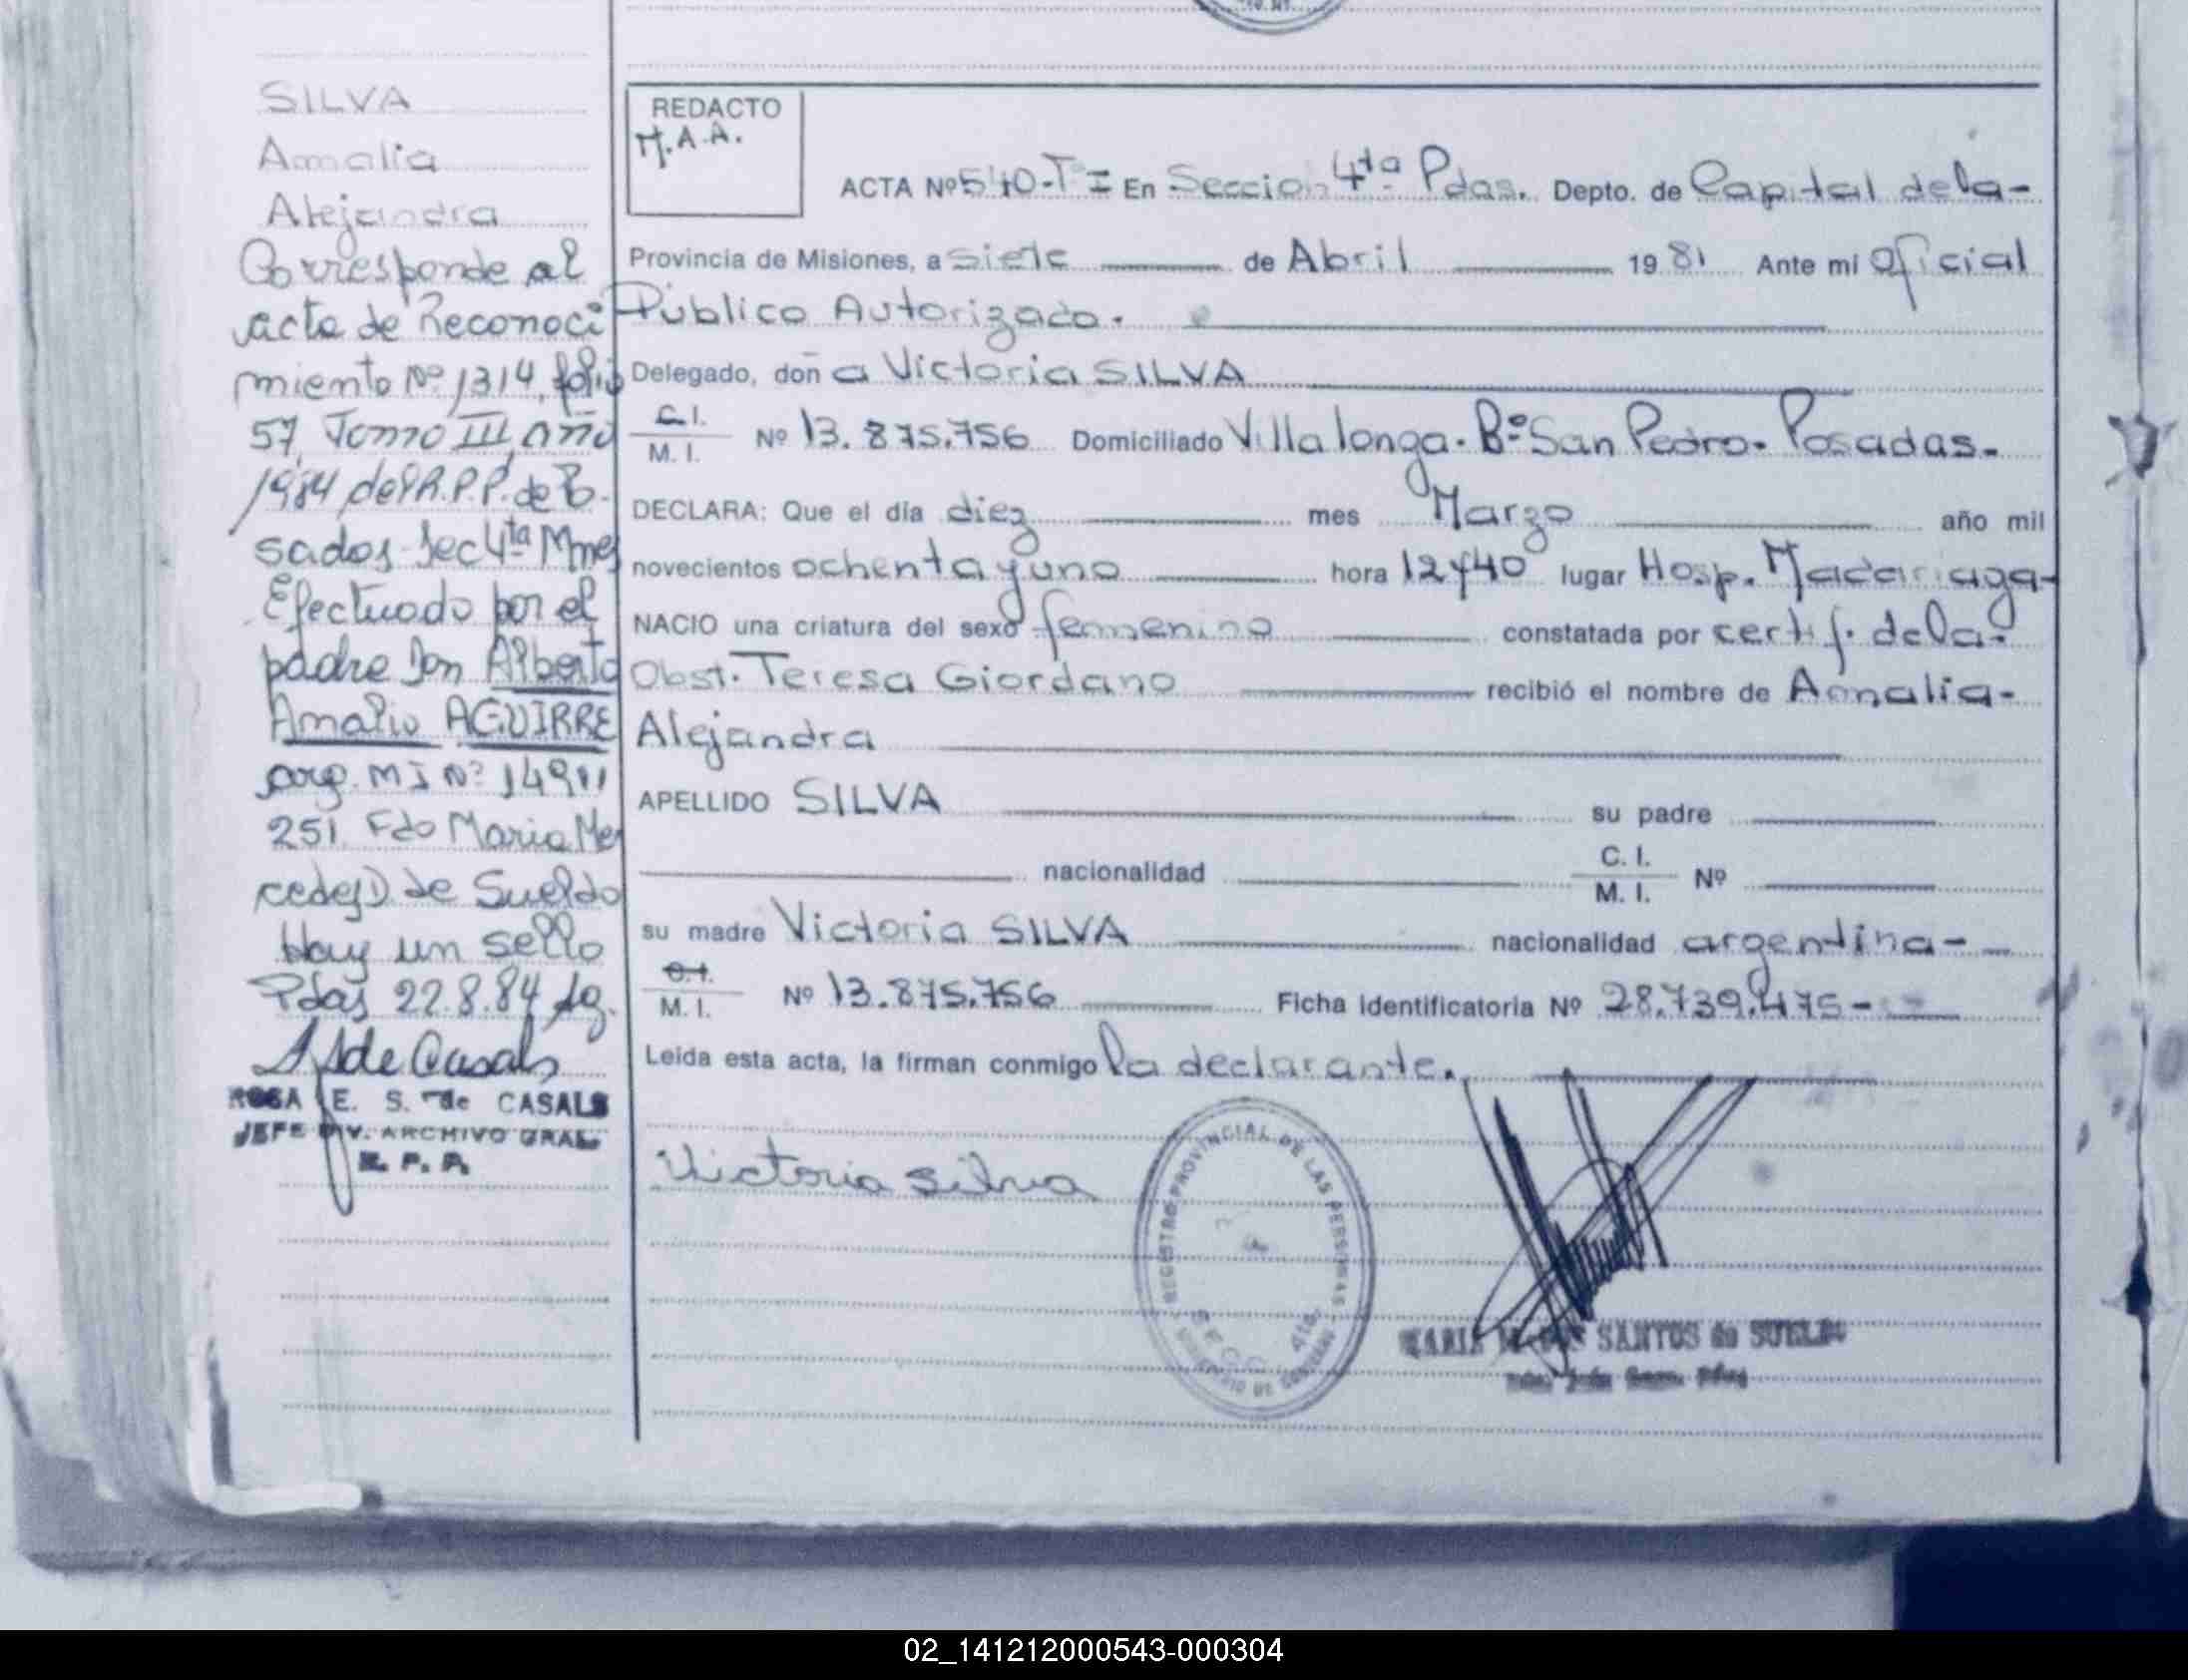 SILVA
Amalia
Alejandra
Corresponde al
acta de Reconoci
miento Nº 1314, folio
57, Tomo III, Año
1984 del R.P.P. de P.
sados Sec 4ta Mnes
Efectuado por el
padre Don Alberto
Amalio AGUIRRE
arg. M I Nº 14911
251. Fdo Maria Mer
cedes D de Sueldo
Hay un sello
Pdas 22.8.84 Ag.
de Casals
ROSA E. S. de CASALS
JEFE DIV. ARCHIVO GRAL.
R. P. P.
REDACTO
M.A.A.
ACTA Nº 540-Tº I En Seccion 4ta Pdas. Depto. de Capital de la-
Provincia de Misiones, a siete de Abril 1981 Ante mi Oficial
Público Autorizado.
Delegado, doña Victoria SILVA
C.I.
M. I. Nº 13.875.756 Domiciliado Villalonga. Bº San Pedro. Posadas.
DECLARA: Que el día diez mes Marzo año mil
novecientos ochenta y uno hora 12y40 lugar Hosp. Madariaga-
NACIO una criatura del sexo femenino constatada por certif. de la
Obst. Teresa Giordano recibió el nombre de Amalia-
Alejandra
APELLIDO SILVA su padre
nacionalidad C. I. M. I. Nº
su madre Victoria SILVA nacionalidad argentina-
C.I.
M. I. Nº 13.875.756 Ficha Identificatoria Nº 28.739.475-
Leída esta acta, la firman conmigo la declarante.
Victoria Silva
REGISTRO PROVINCIAL DE LAS PERSONAS
SECC. 4ta.
MINISTERIO DE GOBIERNO
MARIA M. DOS SANTOS de SUELDO
02_141212000543-000304